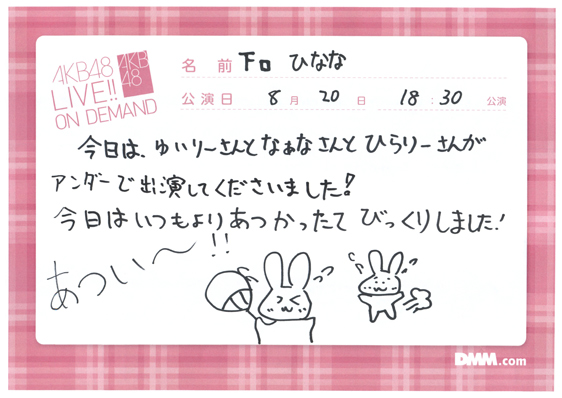 AKB48
LIVE!!
ON DEMAND
AKB
48
名前 下口 ひなな
公演日 8月 20日 18:30 公演
今日は、ゆいりーさんとなぁなさんとひらりーさんが
アンダーで出演してくださいました!
今日はいつもよりあつかったてびっくりしました!
あつい〜!!
DMM.com